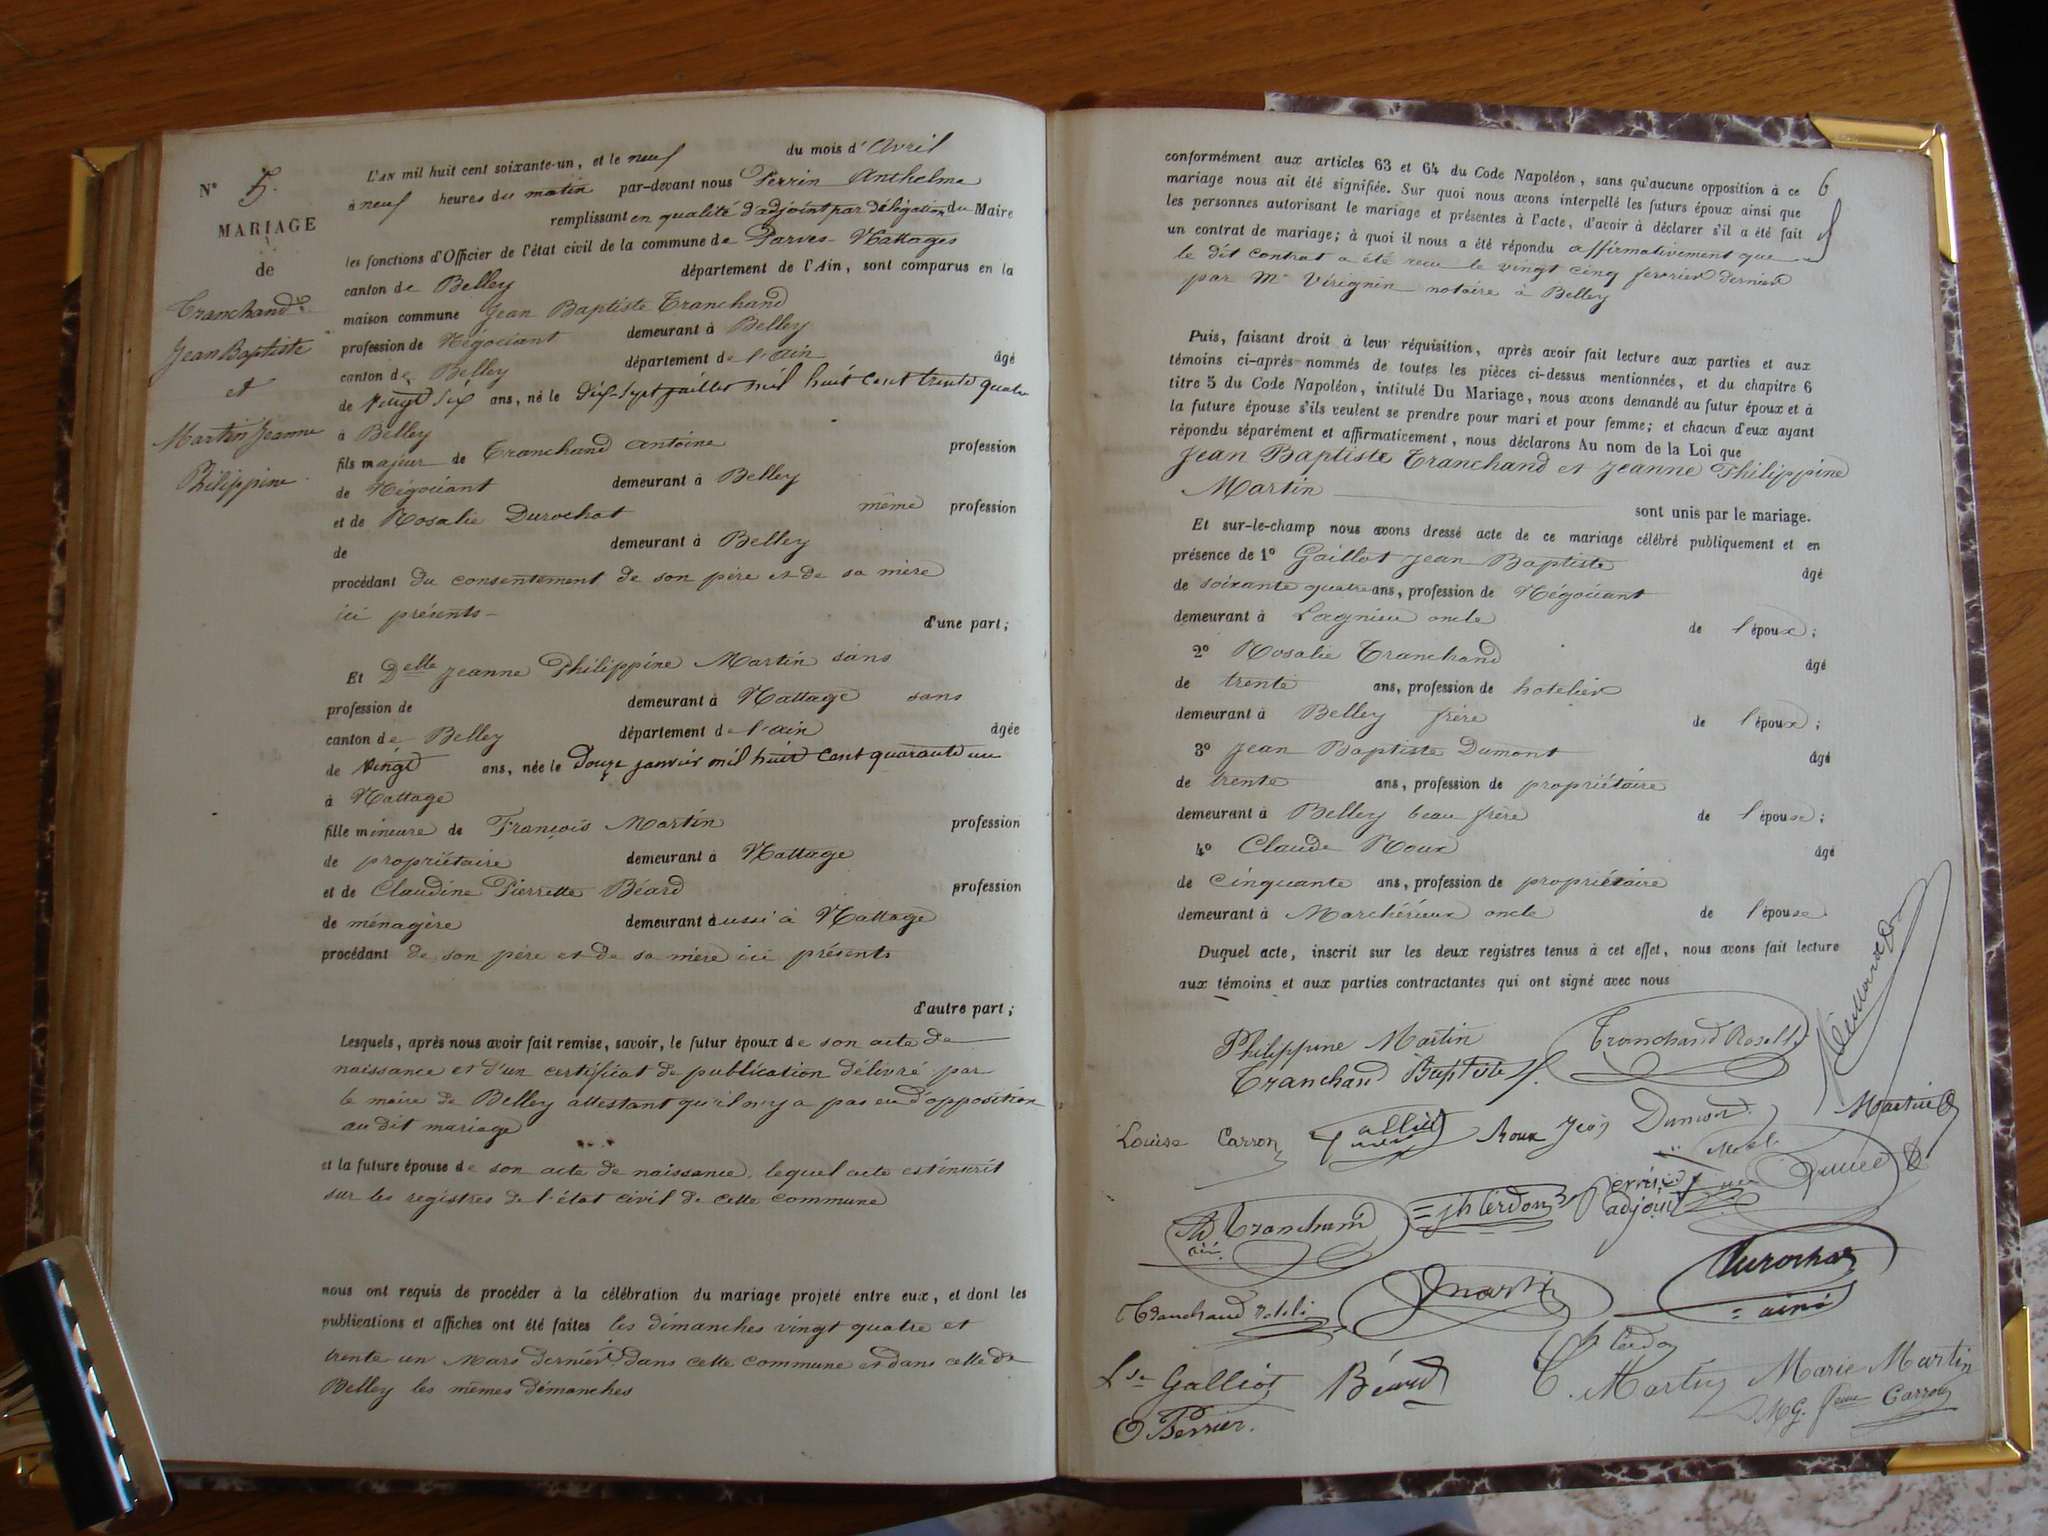 N° 5.
MARIAGE
de
Tranchand
Jean Baptiste
et
Martin Jeanne
Philippine
L'AN mil huit cent soixante-un, et le neuf du mois d'Avril
à neuf heures du matin par-devant nous Perrin Anthelme
remplissant en qualité d'adjoint par délégation du Maire
les fonctions d'Officier de l'état civil de la commune de Parves-Nattages
canton de Belley département de l'Ain, sont comparus en la
maison commune Jean Baptiste Tranchand
profession de Négociant demeurant à Belley
canton de Belley département de l'ain âgé
de vingt six ans, né le dix-sept juillet mil huit cent trente quatre
à Belley
fils majeur de Tranchand Antoine profession
de Négociant demeurant à Belley
et de Rosalie Durochat même profession
de demeurant à Belley
procédant du consentement de son père et de sa mère
ici présents - d'une part;
Et Delle Jeanne Philippine Martin sans
profession de demeurant à Nattage sans
canton de Belley département de l'ain âgée
de vingt ans, née le douze janvier mil huit cent quarante un
à Nattage
fille mineure de François Martin profession
de propriétaire demeurant à Nattage
et de Claudine Pierrette Béard profession
de ménagère demeurant aussi à Nattage
procédant de son père et de sa mère ici présents
d'autre part;
Lesquels, après nous avoir fait remise, savoir, le futur époux de son acte de
naissance et d'un certificat de publication délivré par
le maire de Belley attestant qu'il n'y a pas eu d'opposition
au dit mariage
et la future épouse de son acte de naissance, lequel acte est inscrit
sur les registres de l'état civil de cette commune
nous ont requis de procéder à la célébration du mariage projeté entre eux, et dont les
publications et affiches ont été faites les dimanches vingt quatre et
trente un Mars dernier dans cette commune et dans celle de
Belley les mêmes dimanches
6
conformément aux articles 63 et 64 du Code Napoléon, sans qu'aucune opposition à ce
mariage nous ait été signifiée. Sur quoi nous avons interpellé les futurs époux ainsi que
les personnes autorisant le mariage et présentes à l'acte, d'avoir à déclarer s'il a été fait
un contrat de mariage; à quoi il nous a été répondu affirmativement que
le dit contrat a été recu le vingt cinq fevrier dernier
par Me Virignin notaire à Belley
Puis, faisant droit à leur réquisition, après avoir fait lecture aux parties et aux
témoins ci-après nommés de toutes les pièces ci-dessus mentionnées, et du chapitre 6
titre 5 du Code Napoléon, intitulé Du Mariage, nous avons demandé au futur époux et à
la future épouse s'ils veulent se prendre pour mari et pour femme; et chacun d'eux ayant
répondu séparément et affirmativement, nous déclarons Au nom de la Loi que
Jean Baptiste Tranchand et Jeanne Philippine
Martin sont unis par le mariage.
Et sur-le-champ nous avons dressé acte de ce mariage célébré publiquement et en
présence de 1° Gaillot Jean Baptiste âgé
de soixante quatre ans, profession de Négociant
demeurant à Lagnieu oncle de l'époux;
2° Rosalie Tranchand âgé
de trente ans, profession de hotelier
demeurant à Belley frère de l'époux;
3° Jean Baptiste Dumont âgé
de trente ans, profession de propriétaire
demeurant à Belley beau frère de l'épouse;
4° Claude Roux âgé
de cinquante ans, profession de propriétaire
demeurant à Marchérieux oncle de l'épouse
Duquel acte, inscrit sur les deux registres tenus à cet effet, nous avons fait lecture
aux témoins et aux parties contractantes qui ont signé avec nous
Philippine Martin
Tranchand
Tranchand Baptiste
Martin
Louise Carron
Roux
Dumont
Tranchand
Perrin
adjoint
Durochat
ainé
Tranchand
Martin
Galliot
Béard
C. Martin
Marie Martin
MG. feme Carron
Perrier.